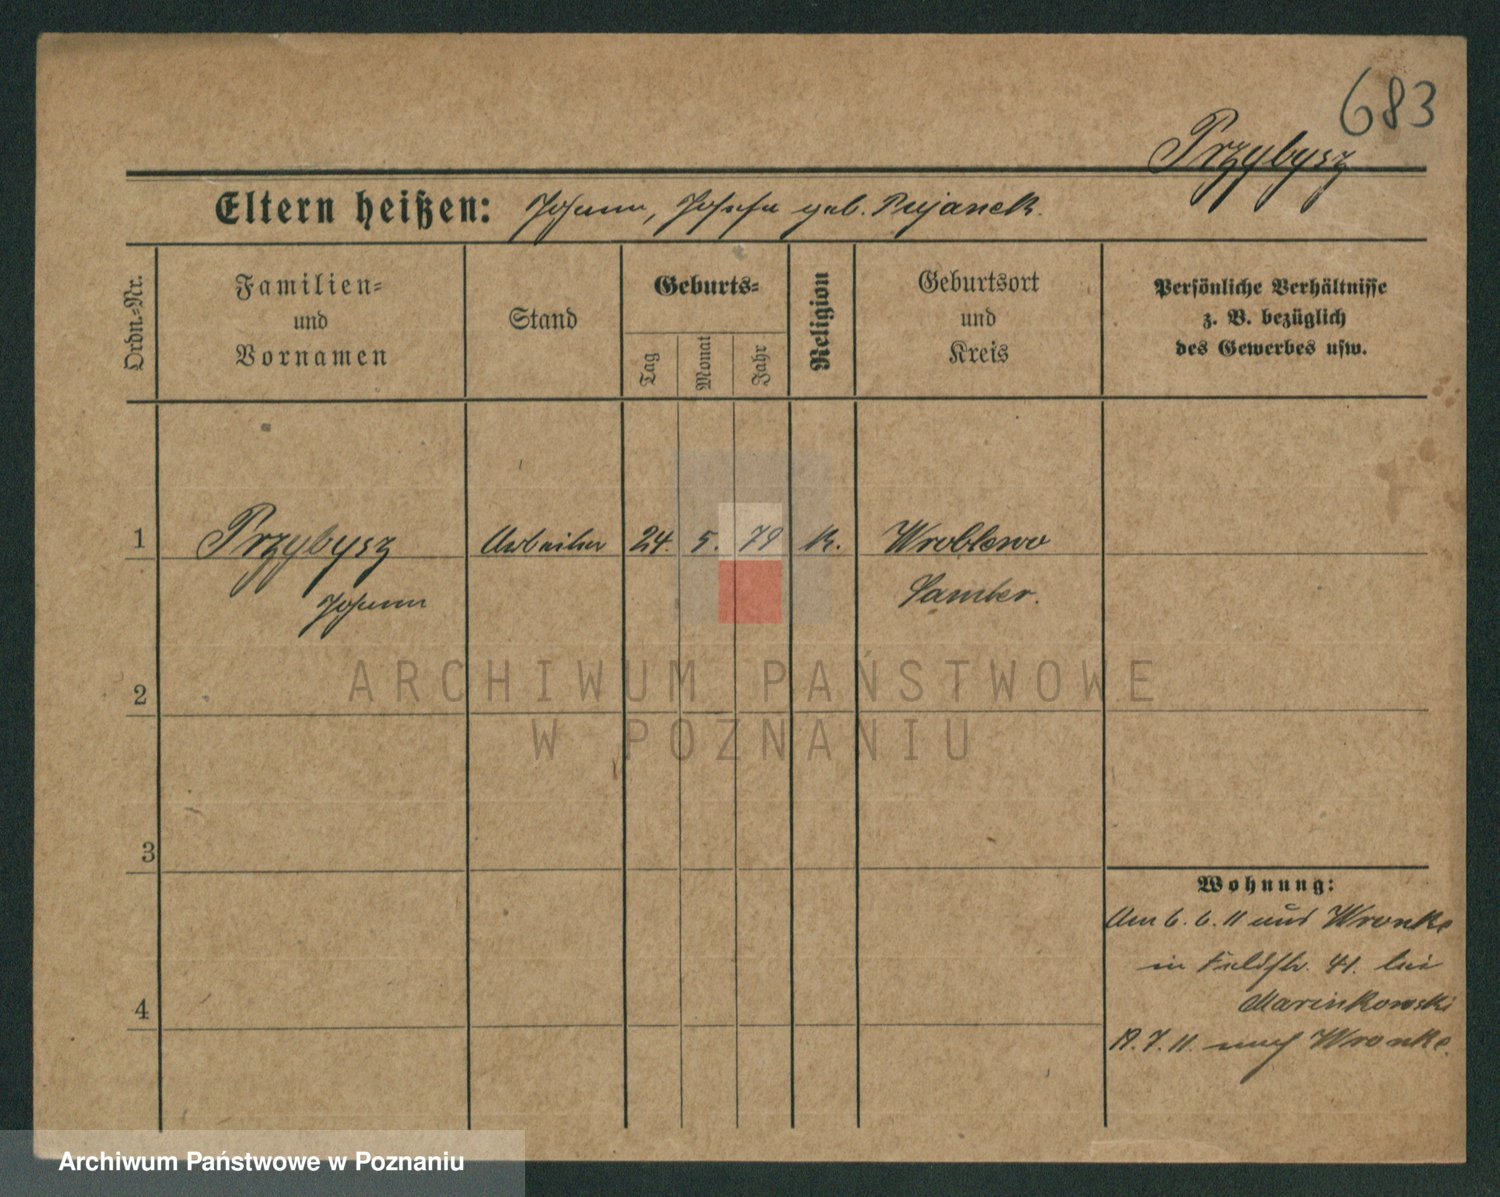 683
Przybysz
Eltern heißen: Johann, Josefa geb. Pujanek.
Ordn.-Nr.
Familien-
und
Vornamen
Stand
Geburts-
Tag
Monat
Jahr
Religion
Geburtsort
und
Kreis
Persönliche Verhältnisse
z. B. bezüglich
des Gewerbes usw.
1 Przybysz Arbeiter 24. 5. 79 K. Wroblewo
Johann Samter.
2
3
4
Wohnung:
Am 6. 6. 11 aus Wronke
in Feldstr. 41. bei
Marinkowski
19. 7. 11. nach Wronke.
ARCHIWUM PAŃSTWOWE
W POZNANIU
Archiwum Państwowe w Poznaniu